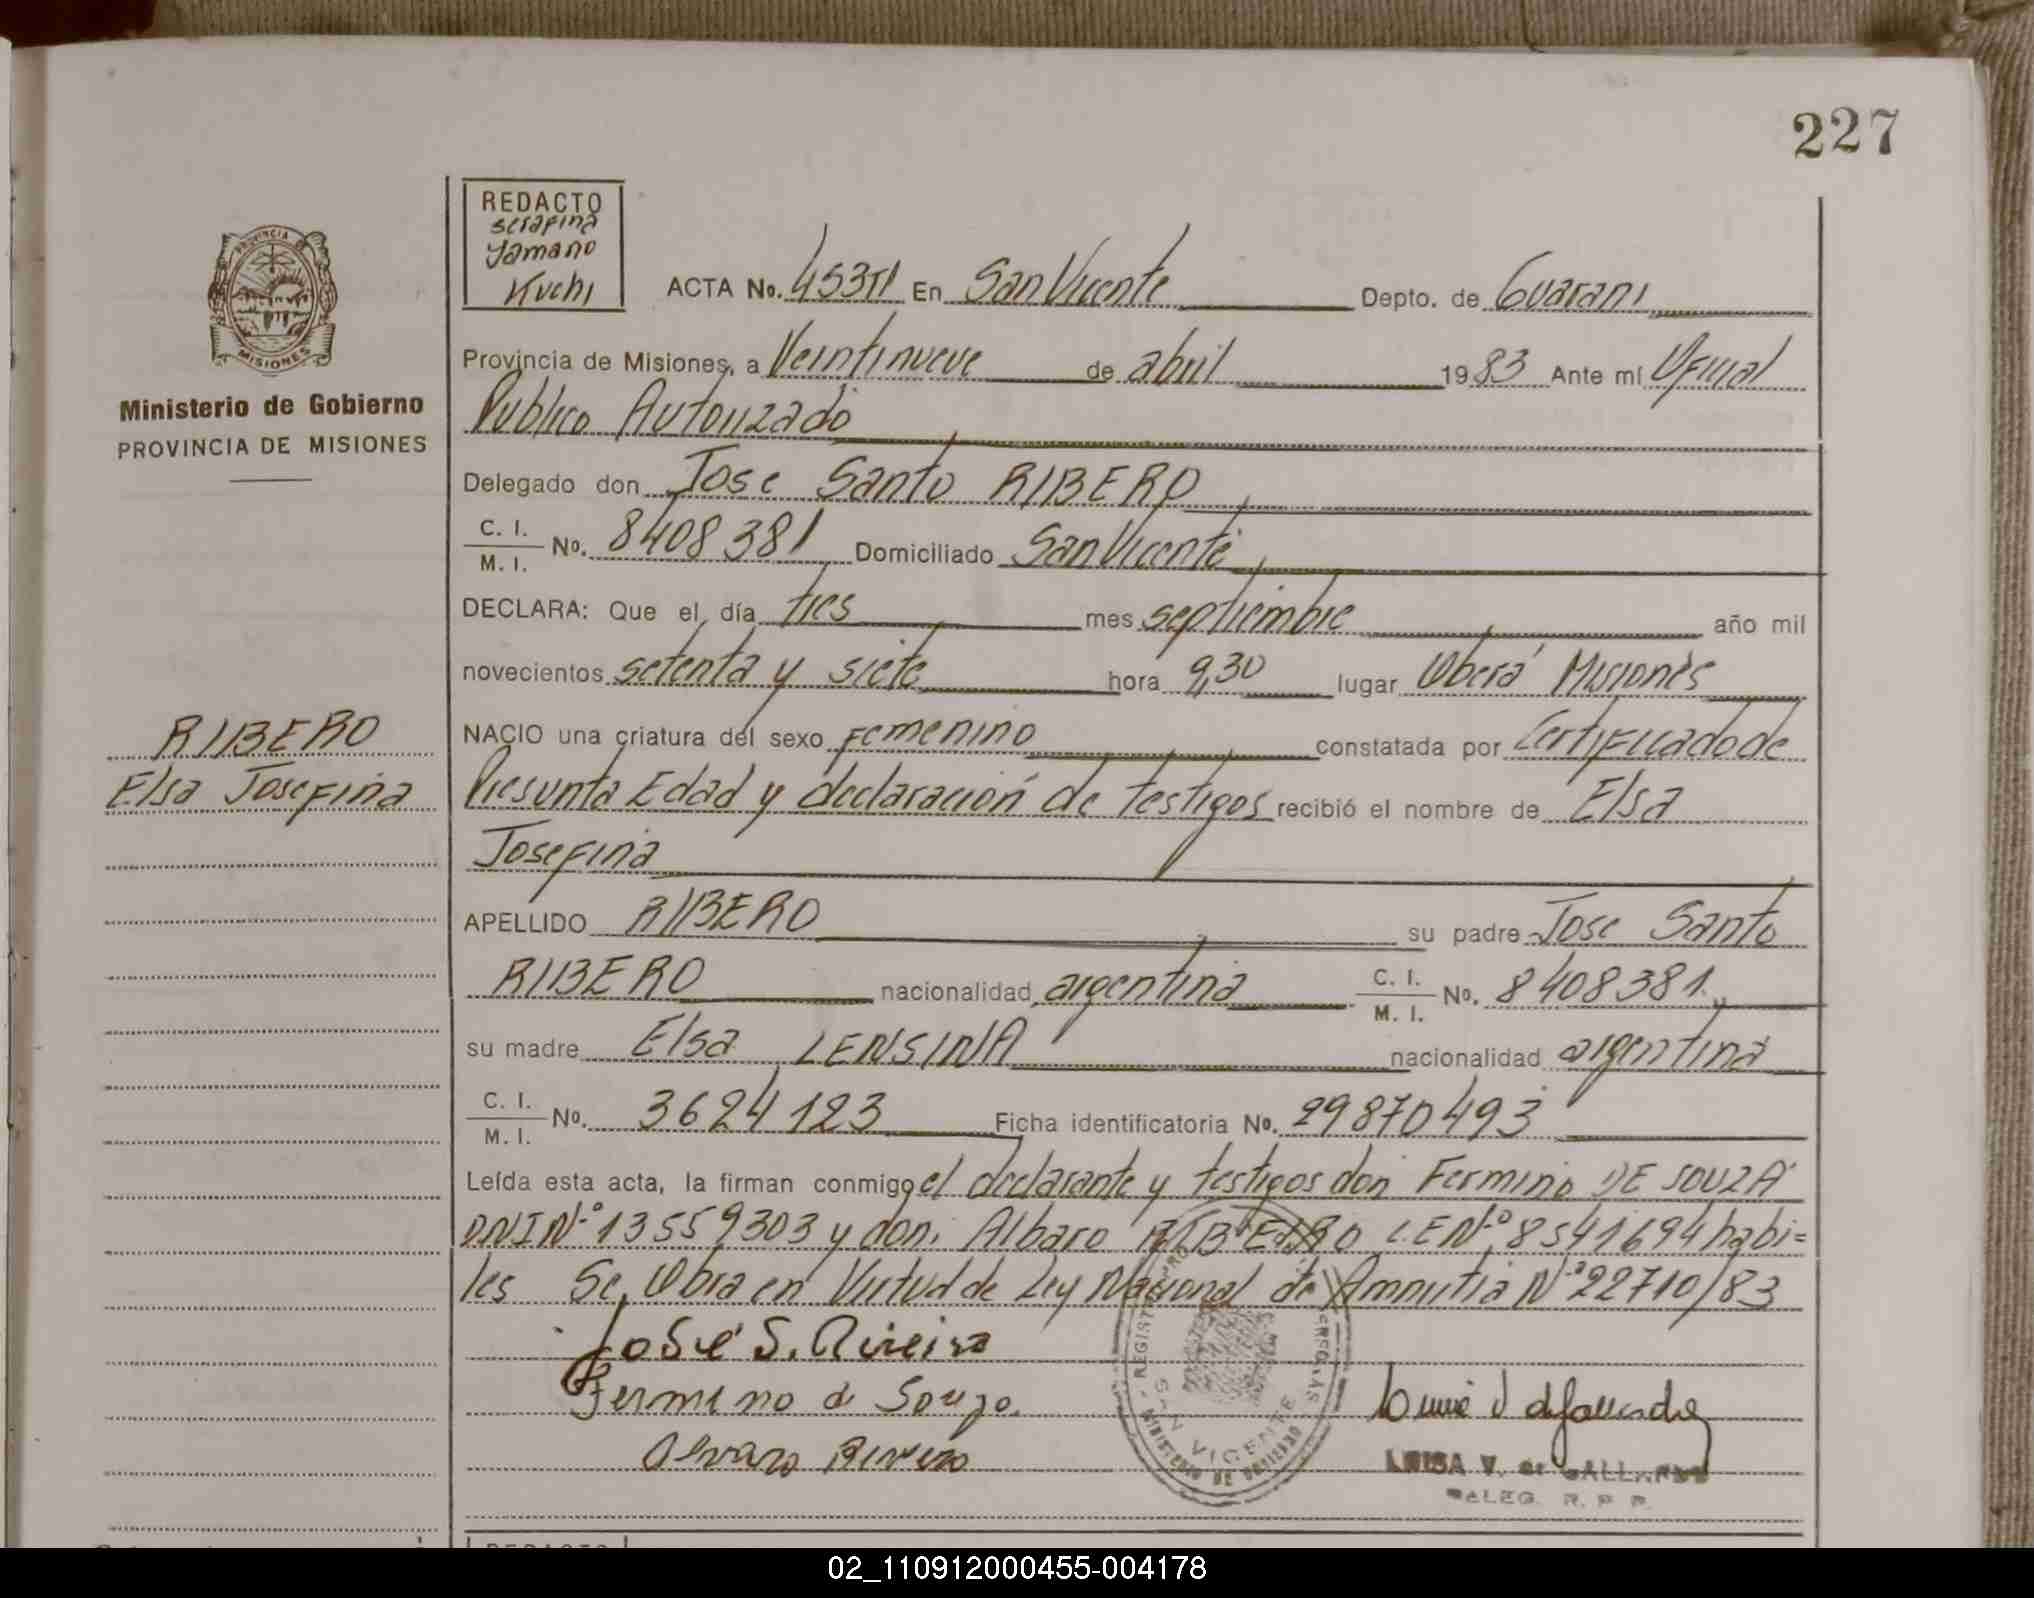 227
REDACTO
Serafina
Yamano
Kuchi
PROVINCIA DE
MISIONES
Ministerio de Gobierno
PROVINCIA DE MISIONES
ACTA No. 453 En San Vicente Depto. de Guarani
Provincia de Misiones, a Veintinueve de abril 1983 Ante mí Oficial
Publico Autorizado
Delegado don Jose Santo RIBERO
C. I. / M. I. No. 8408381 Domiciliado San Vicente
DECLARA: Que el día tres mes septiembre año mil
novecientos setenta y siete hora 9,30 lugar Oberá Misiones
RIBERO
Elsa Josefina
NACIO una criatura del sexo Femenino constatada por Certificado de
Presunta Edad y declaración de testigos recibió el nombre de Elsa
Josefina
APELLIDO RIBERO su padre Jose Santo
RIBERO nacionalidad argentina C. I. / M. I. No. 8408381
su madre Elsa LENSINA nacionalidad argentina
C. I. / M. I. No. 3624123 Ficha identificatoria No. 29870493
Leída esta acta, la firman conmigo el declarante y testigos don Fermino DE SOUZA
DNI Nº 13559303 y don: Albaro RIBERO LE Nº 8541694 habi=
les Se Obra en Virtud de Ley Nacional de Amnistia Nº 22710/83
José S. Riveiro
Fermino d Souza.
Alvaro Rivero
SAN VICENTE
MINISTERIO DE GOBIERNO
LUISA V. de GALLARDO
DALEG. R. P. P.
REDACTO
02_110912000455-004178